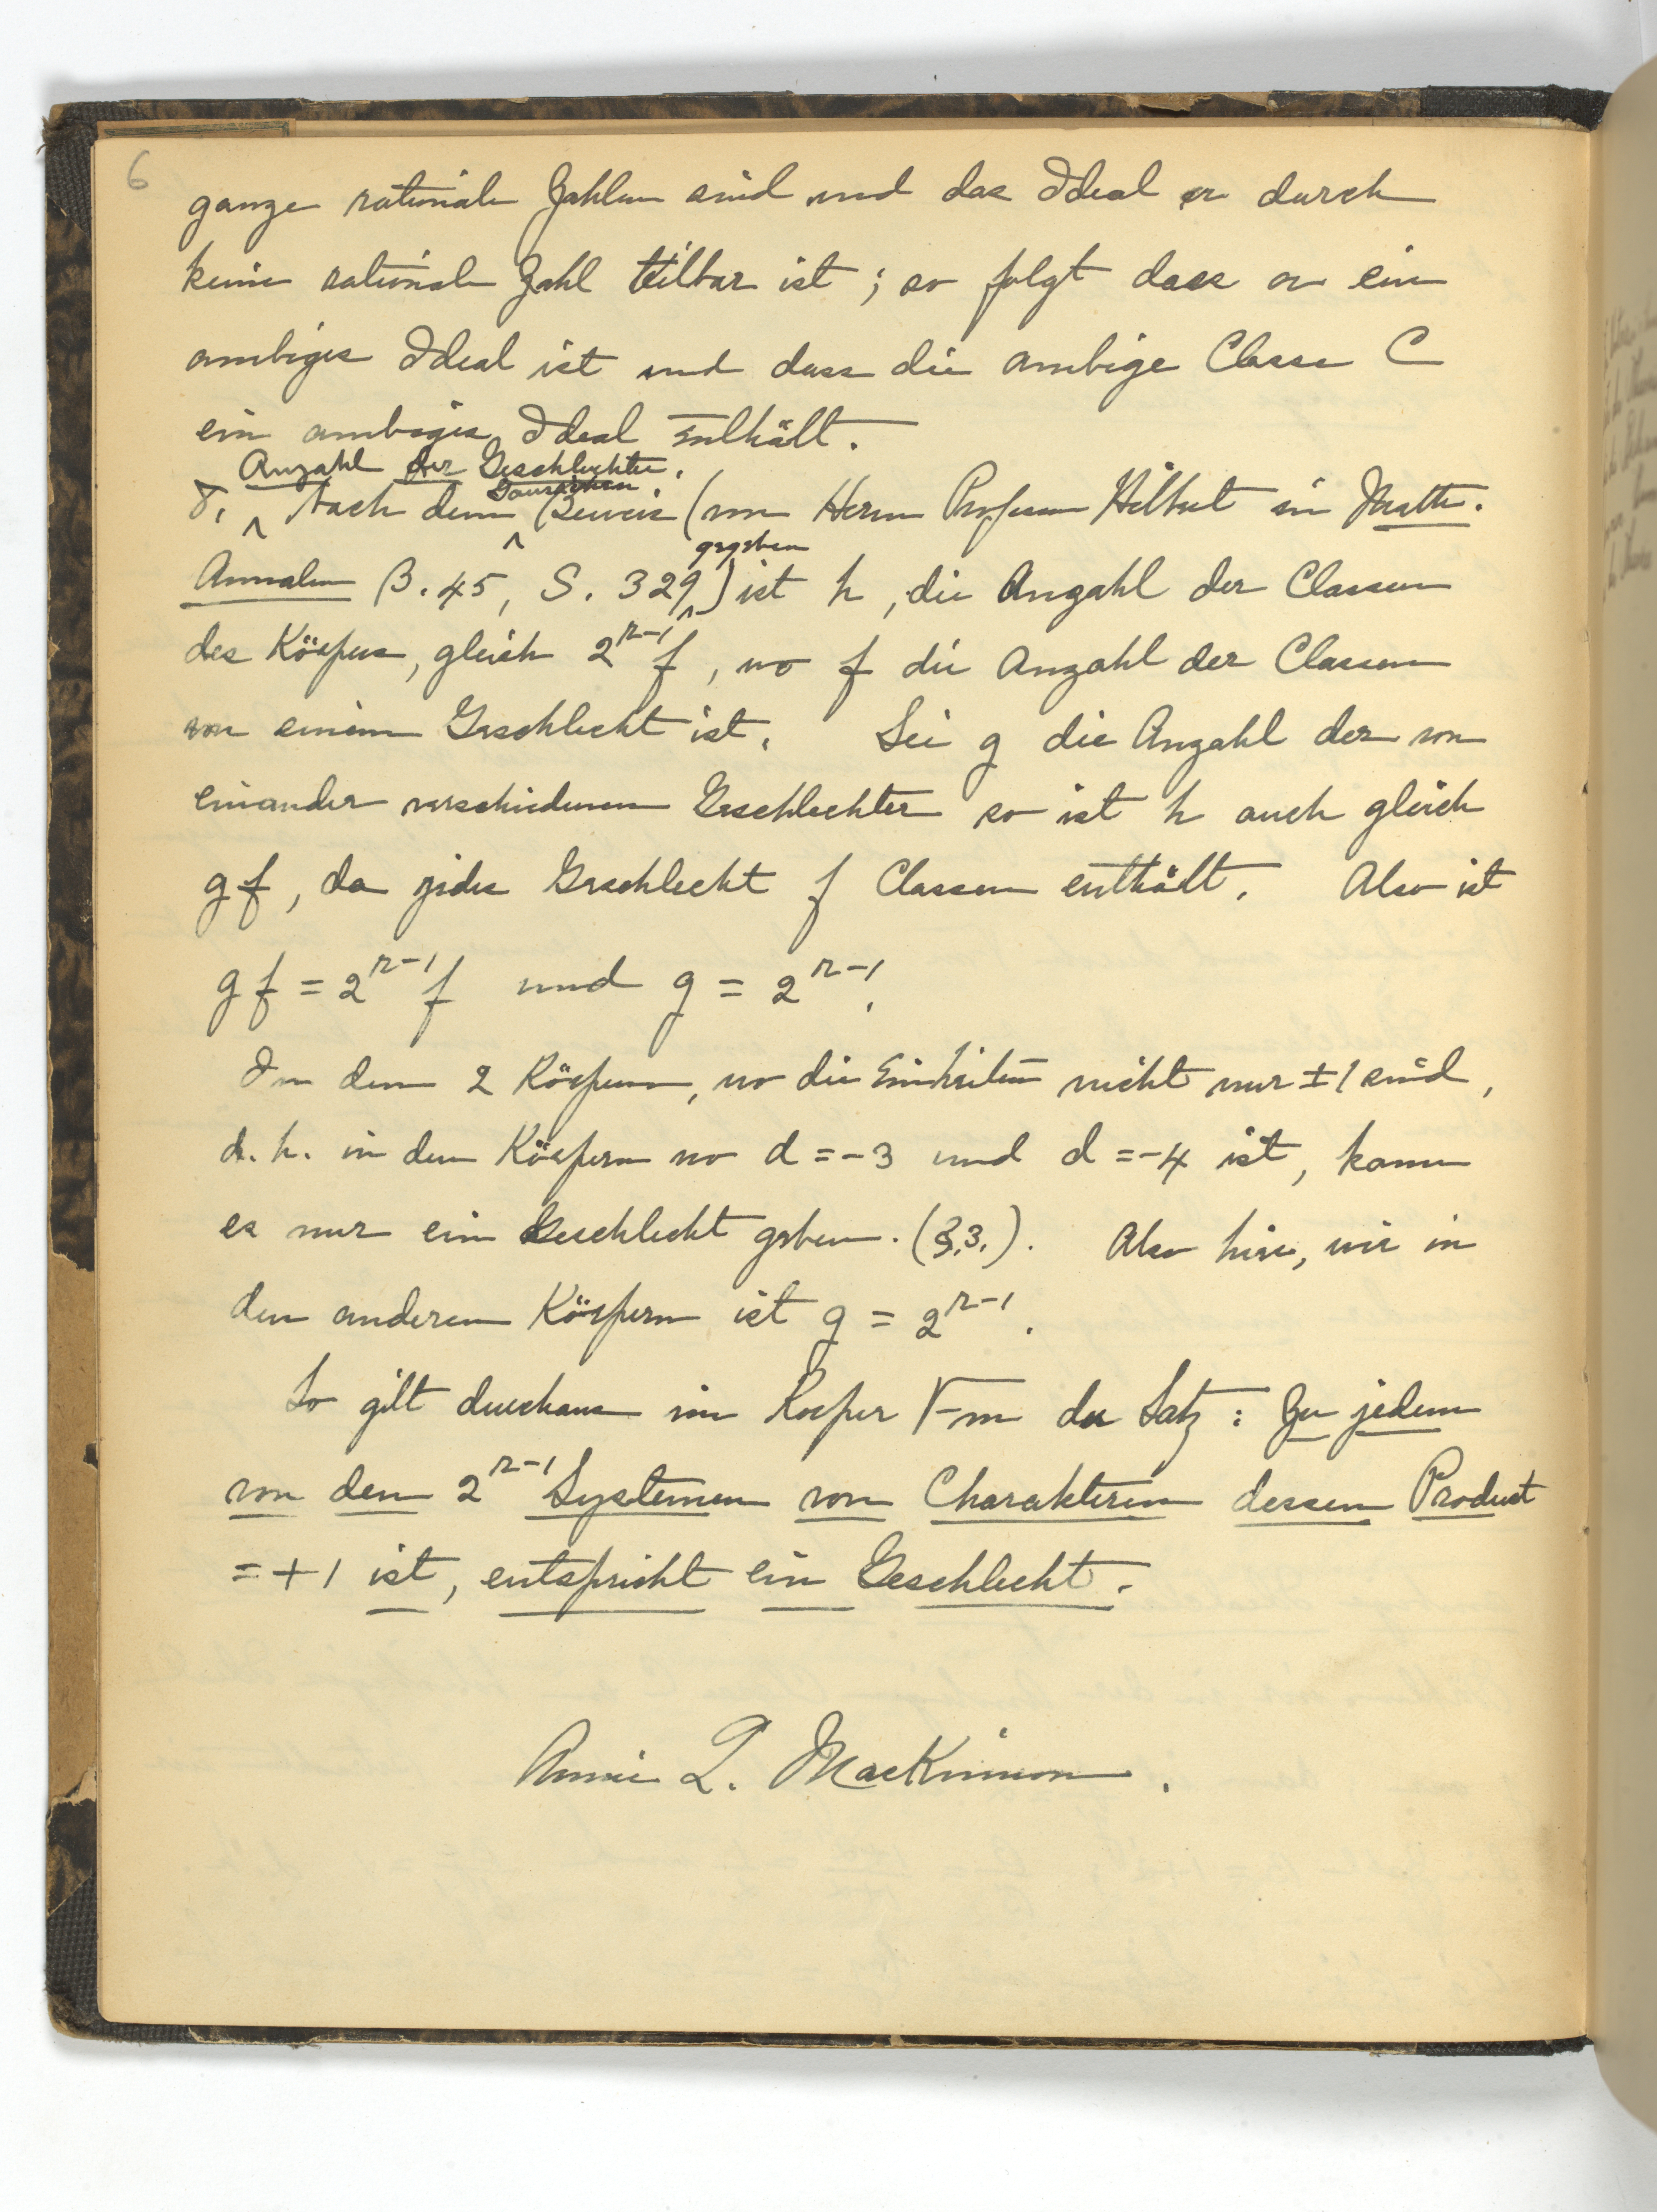 6
ganze rationale Zahlen sind und das Ideal a durch
keine rationale Zahl teilbar ist; so folgt dass a ein
ambiges Ideal ist und dass die ambige Classe C
ein ambiges Ideal enthält.
Anzahl der Geschlechter.
8. Nach dem Beweis (von Herrn Professor Hilbert in Math.
gegeben
Annalen B. 45, S. 329) ist h, die Anzahl der Classen
des Körpers, gleich 2^{r-1} f, wo f die Anzahl der Classen
von einem Geschlecht ist. Sei g die Anzahl der von
einander verschiedenen Geschlechter so ist h auch gleich
gf, da jedes Geschlecht f Classen enthält. Also ist
gf = 2^{r-1} f und g = 2^{r-1}.
In den 2 Körpern, wo die Einheiten nicht nur ±1 sind,
d. h. in den Körpern wo d = -3 und d = -4 ist, kann
es nur ein Geschlecht geben. (§.3.). Also hier, wie in
den anderen Körpern ist g = 2^{r-1}.
So gilt durchaus im Koerper √-m der Satz: Zu jedem
von den 2^{r-1} Systemen von Charakteren dessen Product
= +1 ist, entspricht ein Geschlecht.
Annie L. MacKinnon.